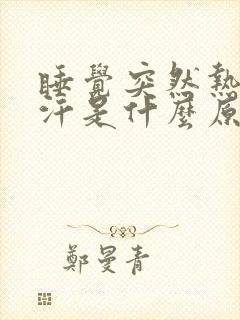 睡覺突然熱
汗是什麼原
鄭曼青